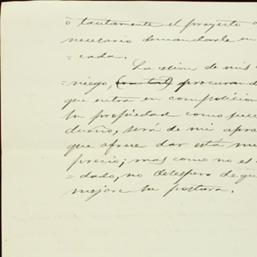 o tacitamente el proyecto
necesario demandarle en
cada.
La accion de mis
procurando
que entra en competicion
tu propiedad como
dueño, será de mi
que ofrece dar está
precio; mas como no es
dado, no desespero de que
mejore tu postura.